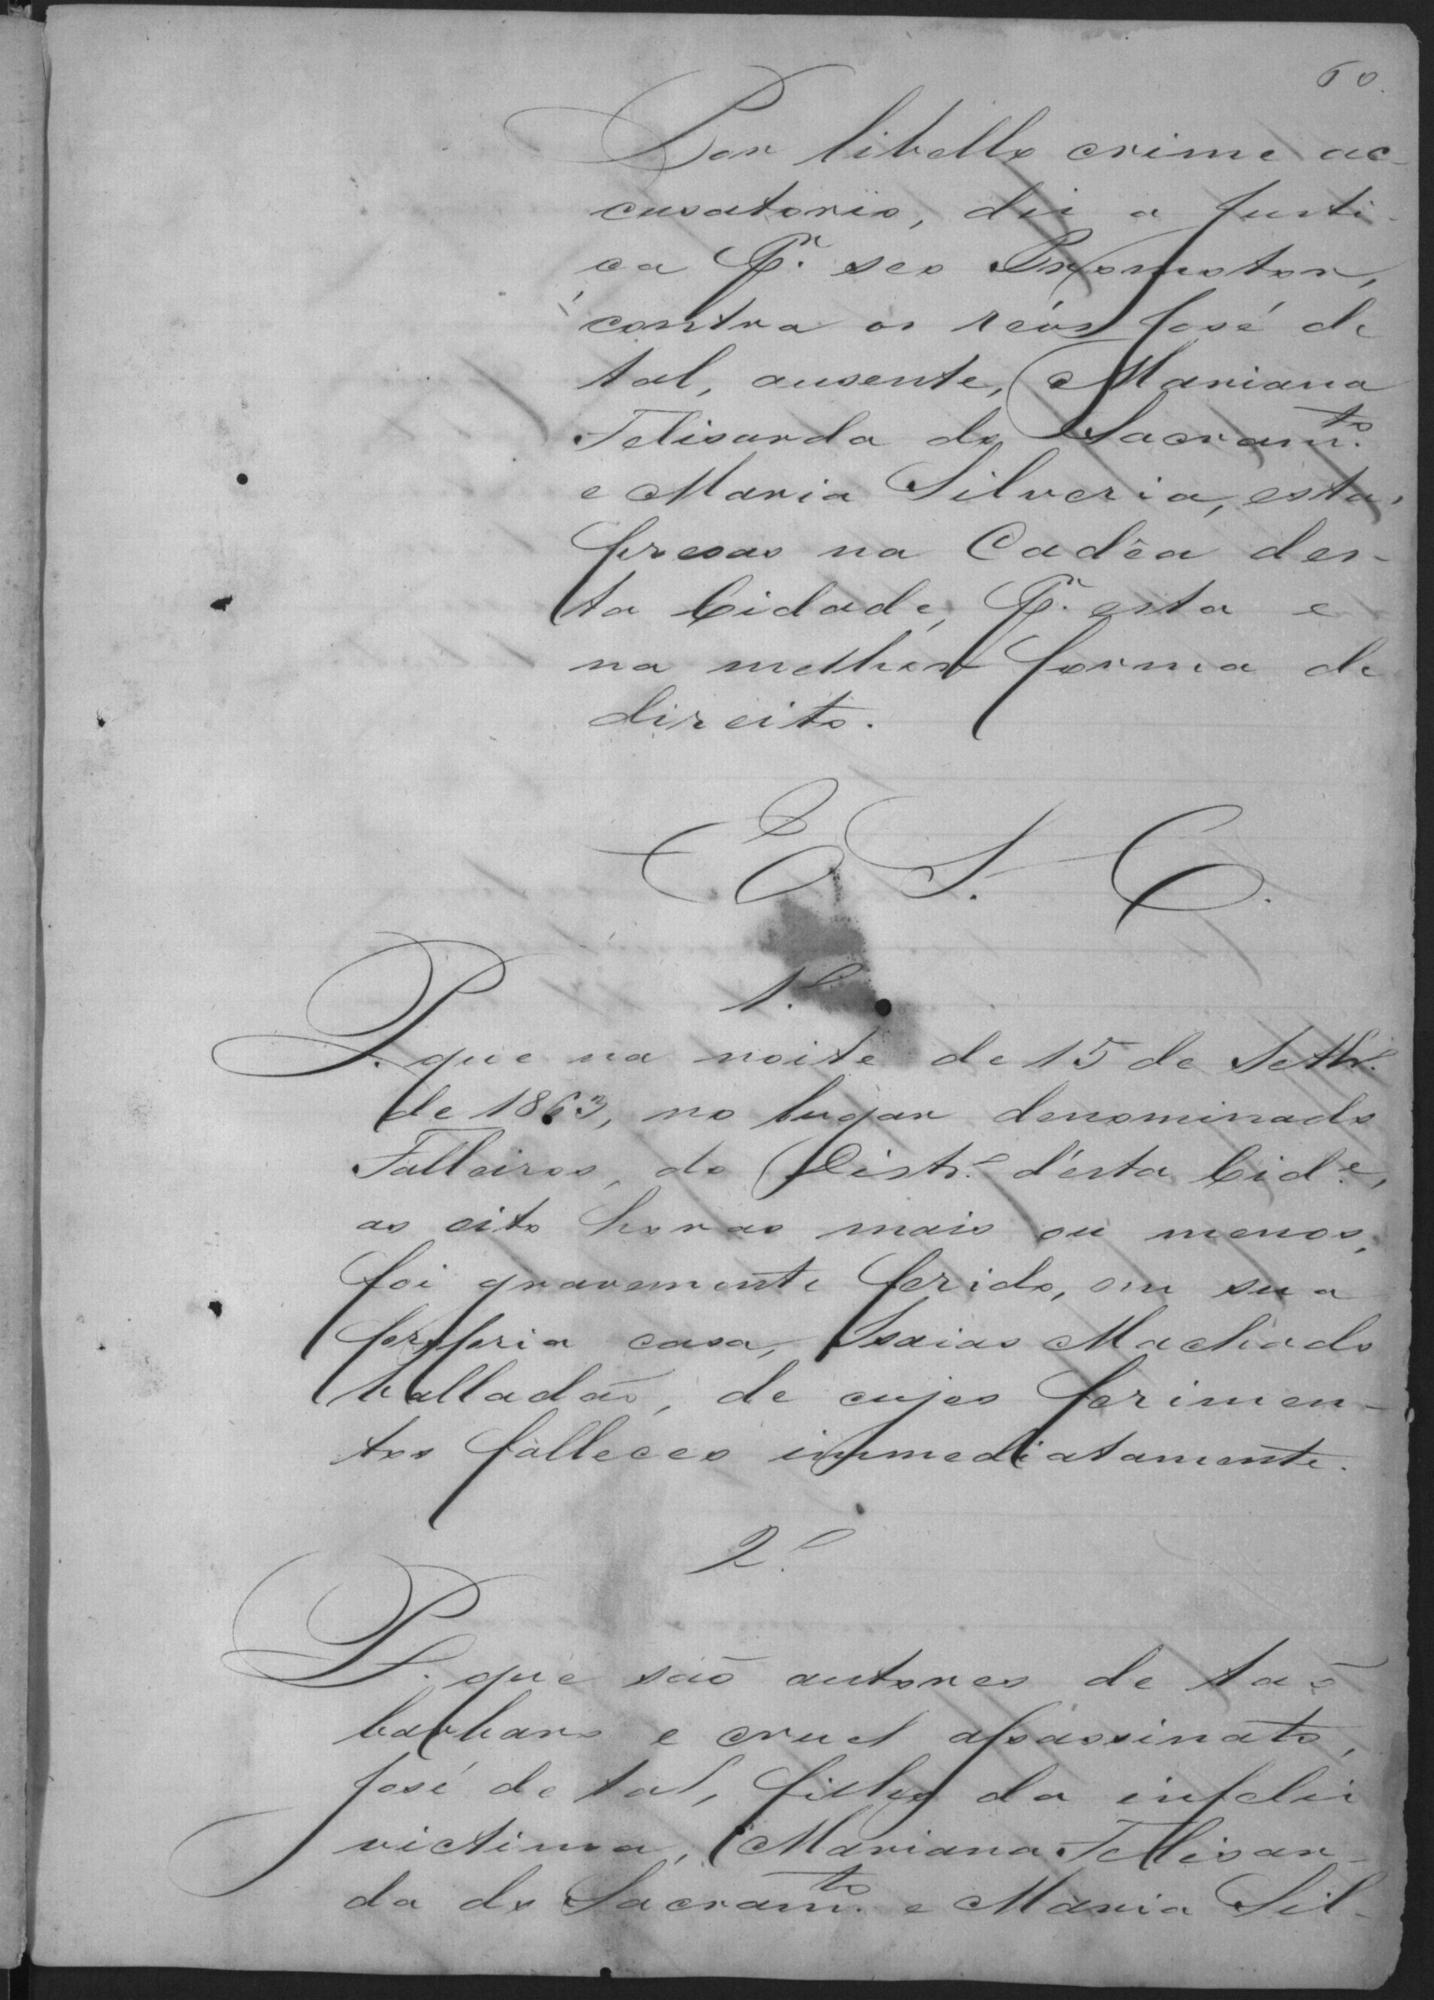 60.
Por libello crime ac-
cusatorio, diz a Justi-
ça P.r seo Promotor,
contra os réos José de
tal, ausente, Mariana
Felisarda do Sacram.to
e Maria Silveria, estas
presas na Cadêa des-
ta Cidade, P.r esta e
na melhor forma de
direito.
E. S. C.
1.º
P. que na noite de 15 de Setbr.º
de 1863, no lugar denominado
Falleiros, do Distr.º d'esta Cid.e,
as oito horas mais ou menos,
foi gravemente ferido, em sua
propria casa, Isaias Machado
Valladão, de cujos ferimen-
tos falleceo immediatamente.
2.º
P. que são autores de tão
barbaro e cruel assassinato,
José de tal, filho da infeliz
victima, Mariana Felisar-
da do Sacram.to e Maria Sil-